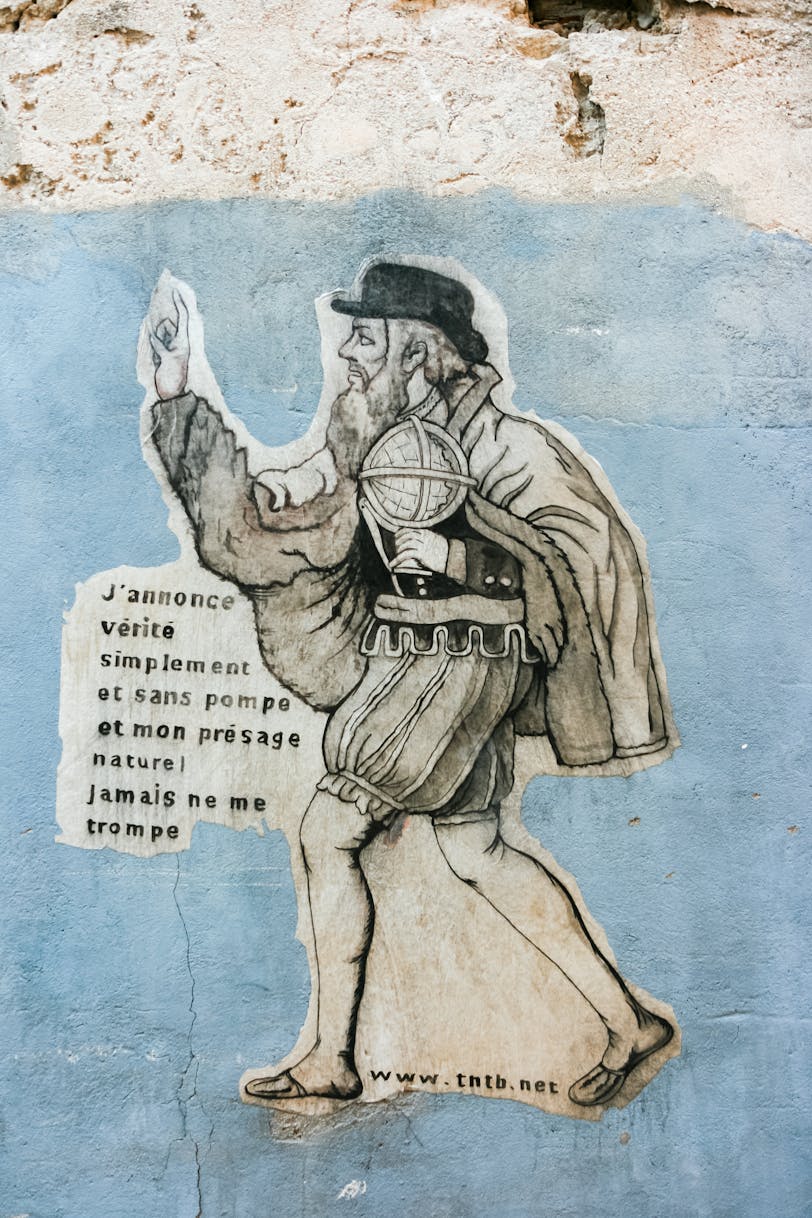 J'annonce
vérité
simplement
et sans pompe
et mon présage
naturel
jamais ne me
trompe
www.tntb.net